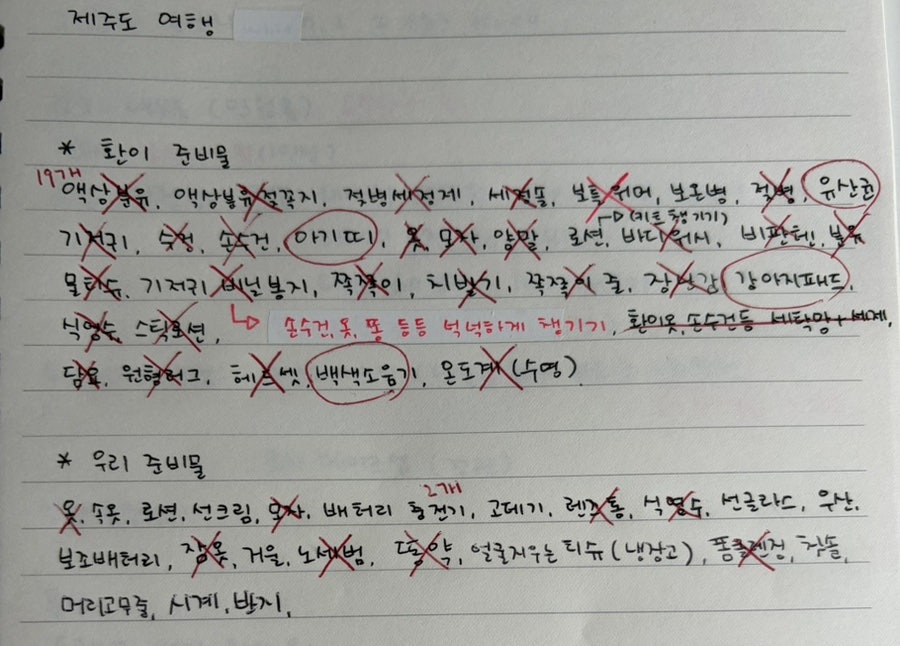 제주도 여행
* 환이 준비물
19개
액상분유, 액상분유젖꼭지, 젖병세정제, 세척솔, 보틀워머, 보온병, 젖병, 유산균
(키트 챙기기)
기저귀, 수건, 손수건, 아기띠, 옷, 모자, 양말, 로션, 바디워시, 비판텐, 분유
물티슈, 기저귀 비닐봉지, 쪽쪽이, 치발기, 쪽쪽이 줄, 장난감, 강아지패드,
식염수, 스틱로션, 손수건, 옷, 똥 등등 넉넉하게 챙기기, 환이옷, 손수건등 세탁망+세제,
담요, 원형러그, 헤드셋, 백색소음기, 온도계(수영)
* 우리 준비물
2개
옷, 속옷, 로션, 선크림, 모자, 배터리 충전기, 고데기, 렌즈통, 식염수, 선글라스, 우산,
보조배터리, 잠옷, 거울, 노세범, 똥약, 얼굴지우는 티슈(냉장고), 폼클렌징, 칫솔,
머리고무줄, 시계, 반지,